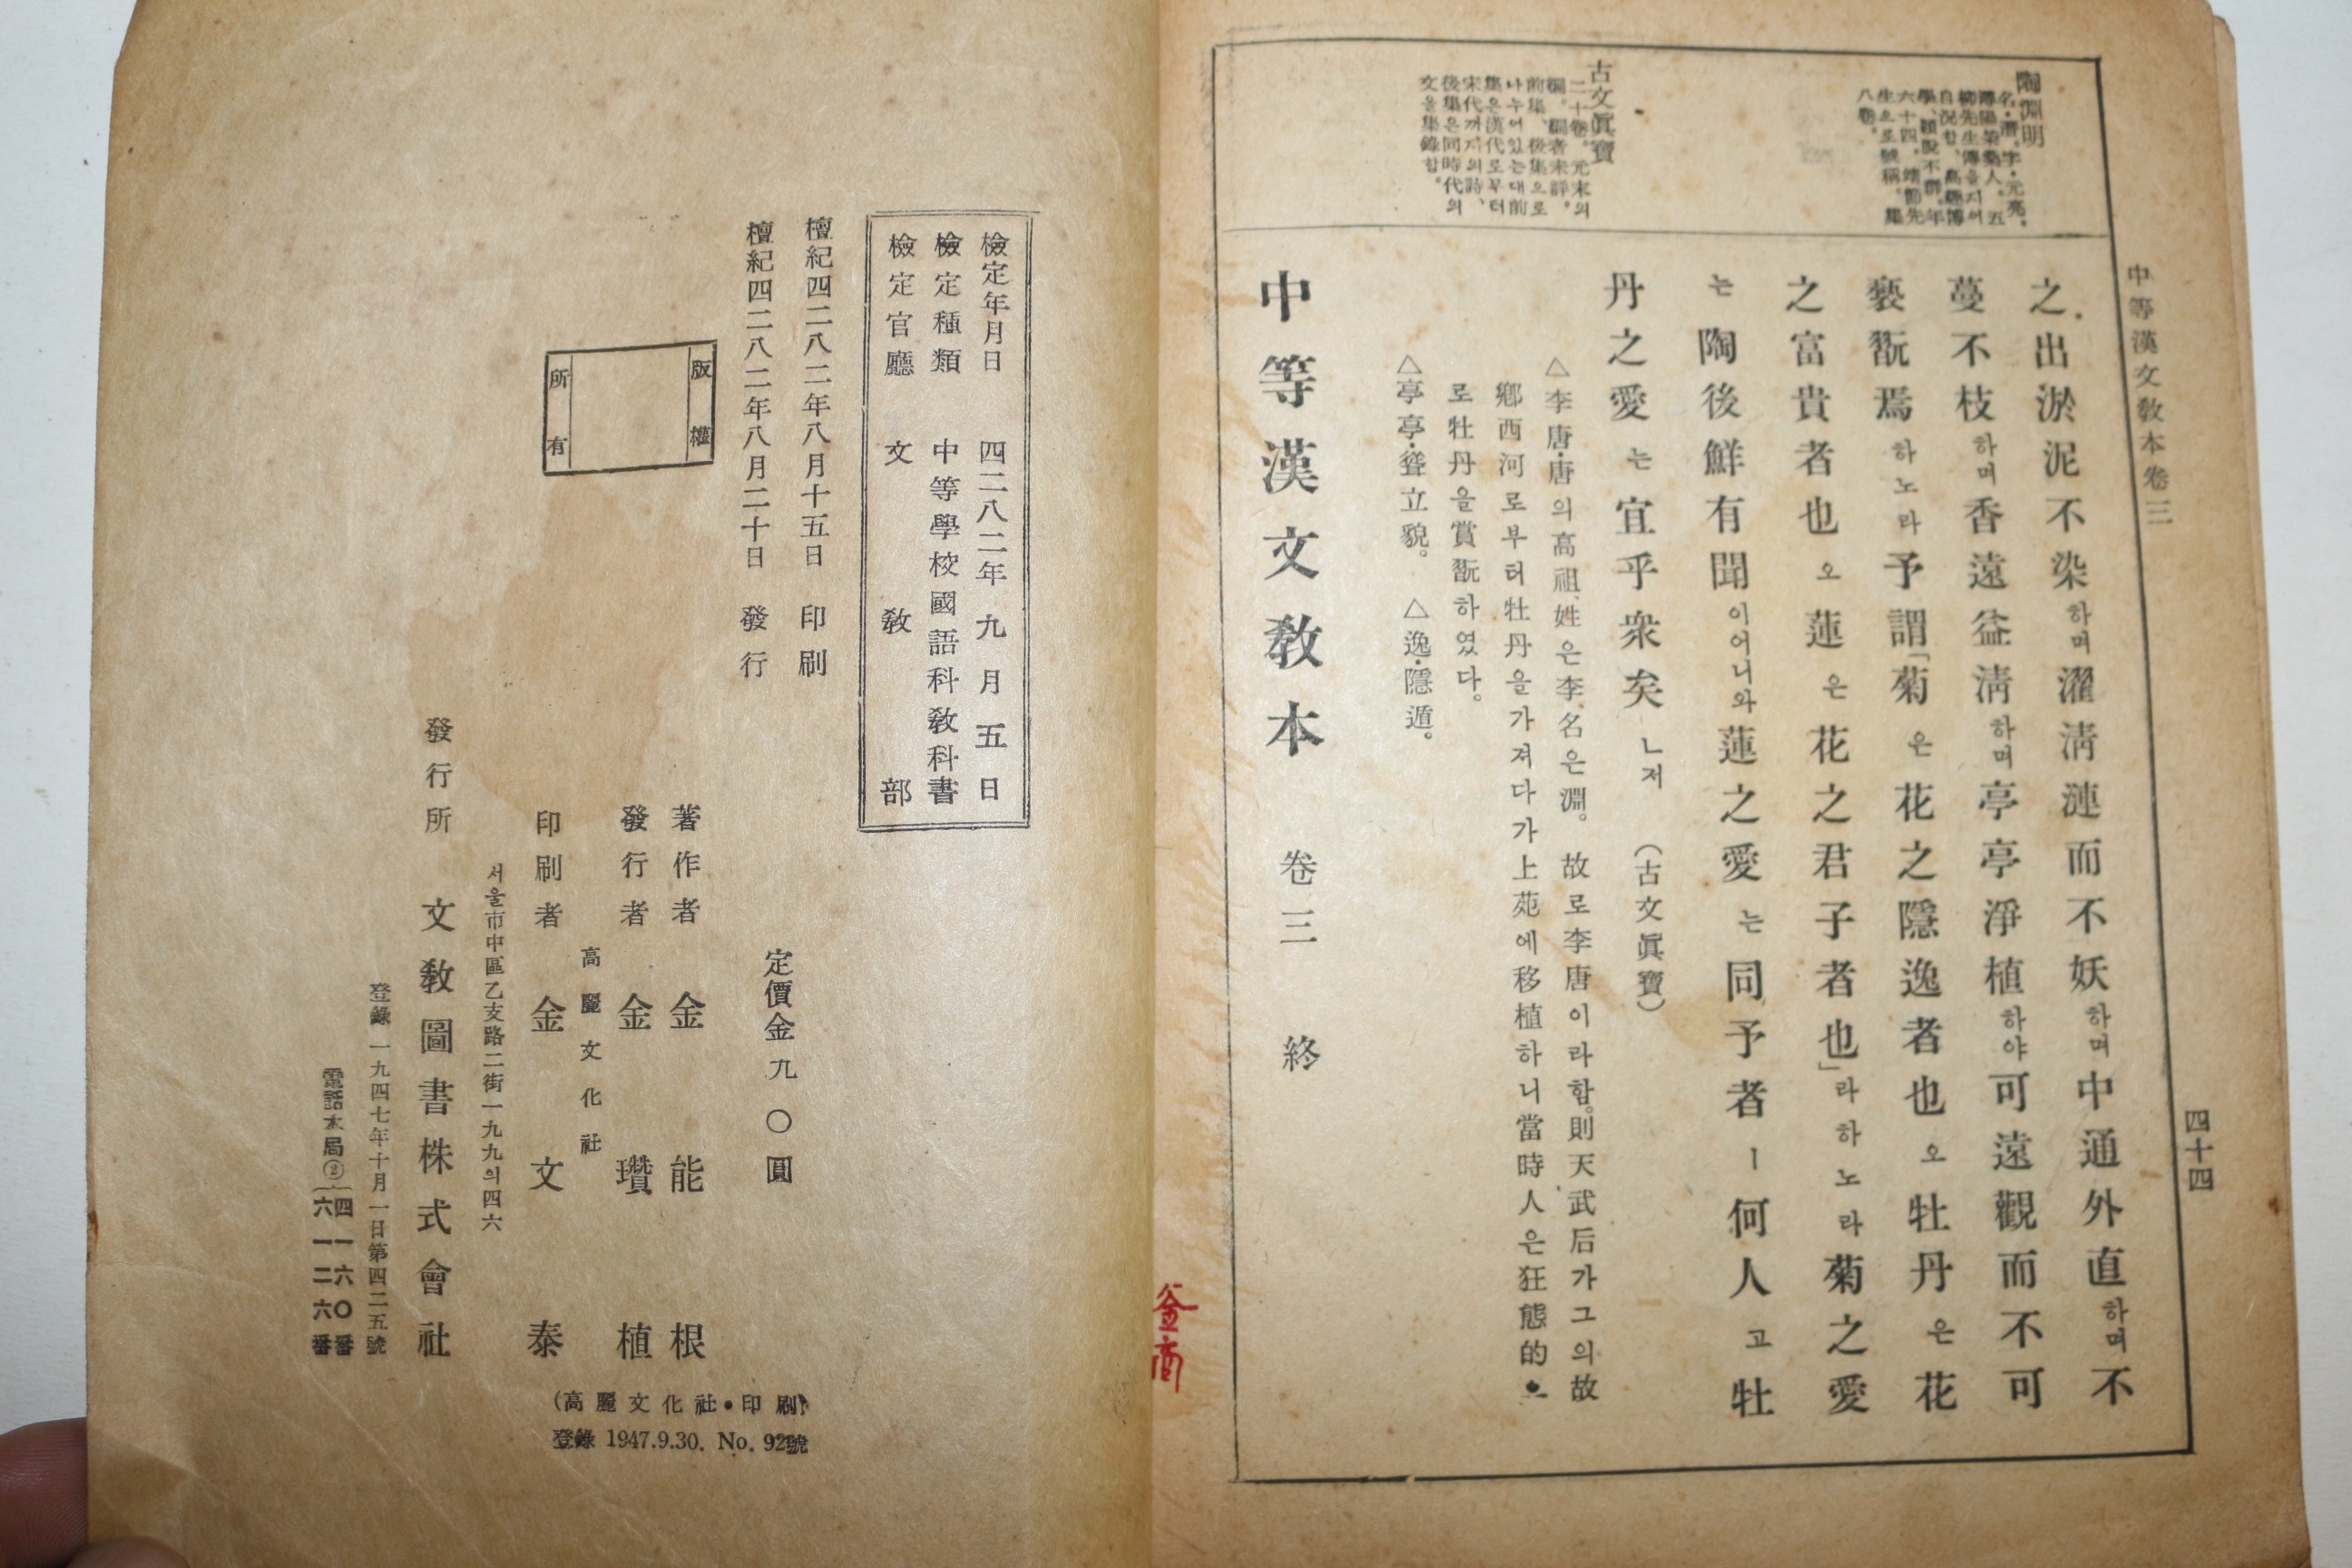 中等漢文敎本卷三
四十四
陶淵明
名·潛。字·元亮。
潯陽柴桑人。五
柳先生傳을지어
自況함、高趣博
學、穎脫不群。年
六十四。靖節先
生으로號稱。集
八卷。
古文眞寶
二十卷。元末의
編。編者未詳。
前集、後集으로
나누어있는대前
集은漢代로부터
宋代까지의詩、
後集은同時代의
文을集錄함。
之出淤泥不染하며濯淸漣而不妖하며中通外直하며不
蔓不枝하며香遠益淸하며亭亭淨植하야可遠觀而不可
褻翫焉하노라予謂「菊은花之隱逸者也오牡丹은花
之富貴者也오蓮은花之君子者也」라하노라菊之愛
는陶後鮮有聞이어니와蓮之愛는同予者ㅣ何人고牡
丹之愛는宜乎衆矣ㄴ저 (古文眞寶)
△李唐·唐의高祖、姓은李、名은淵。故로李唐이라함。則天武后가그의故
鄕西河로부터牡丹을가져다가上苑에移植하니當時人은狂態的으
로牡丹을賞翫하였다。
△亭亭·聳立貌。 △逸·隱遁。
中等漢文敎本 卷三 終
釜商
檢定年月日 四二八二年九月五日
檢定種類 中等學校國語科敎科書
檢定官廳 文敎部
檀紀四二八二年八月十五日 印刷
檀紀四二八二年八月二十日 發行
版權
所有
定價金九〇圓
著作者 金能根
發行者 金瓚植
高麗文化社
印刷者 金文泰
서울市中區乙支路二街一九九의四六
發行所 文敎圖書株式會社
登錄一九四七年十月一日第四二五號
電話本局②四一六〇番
六一二六番
(高麗文化社·印刷)
登錄 1947.9.30. No. 92號